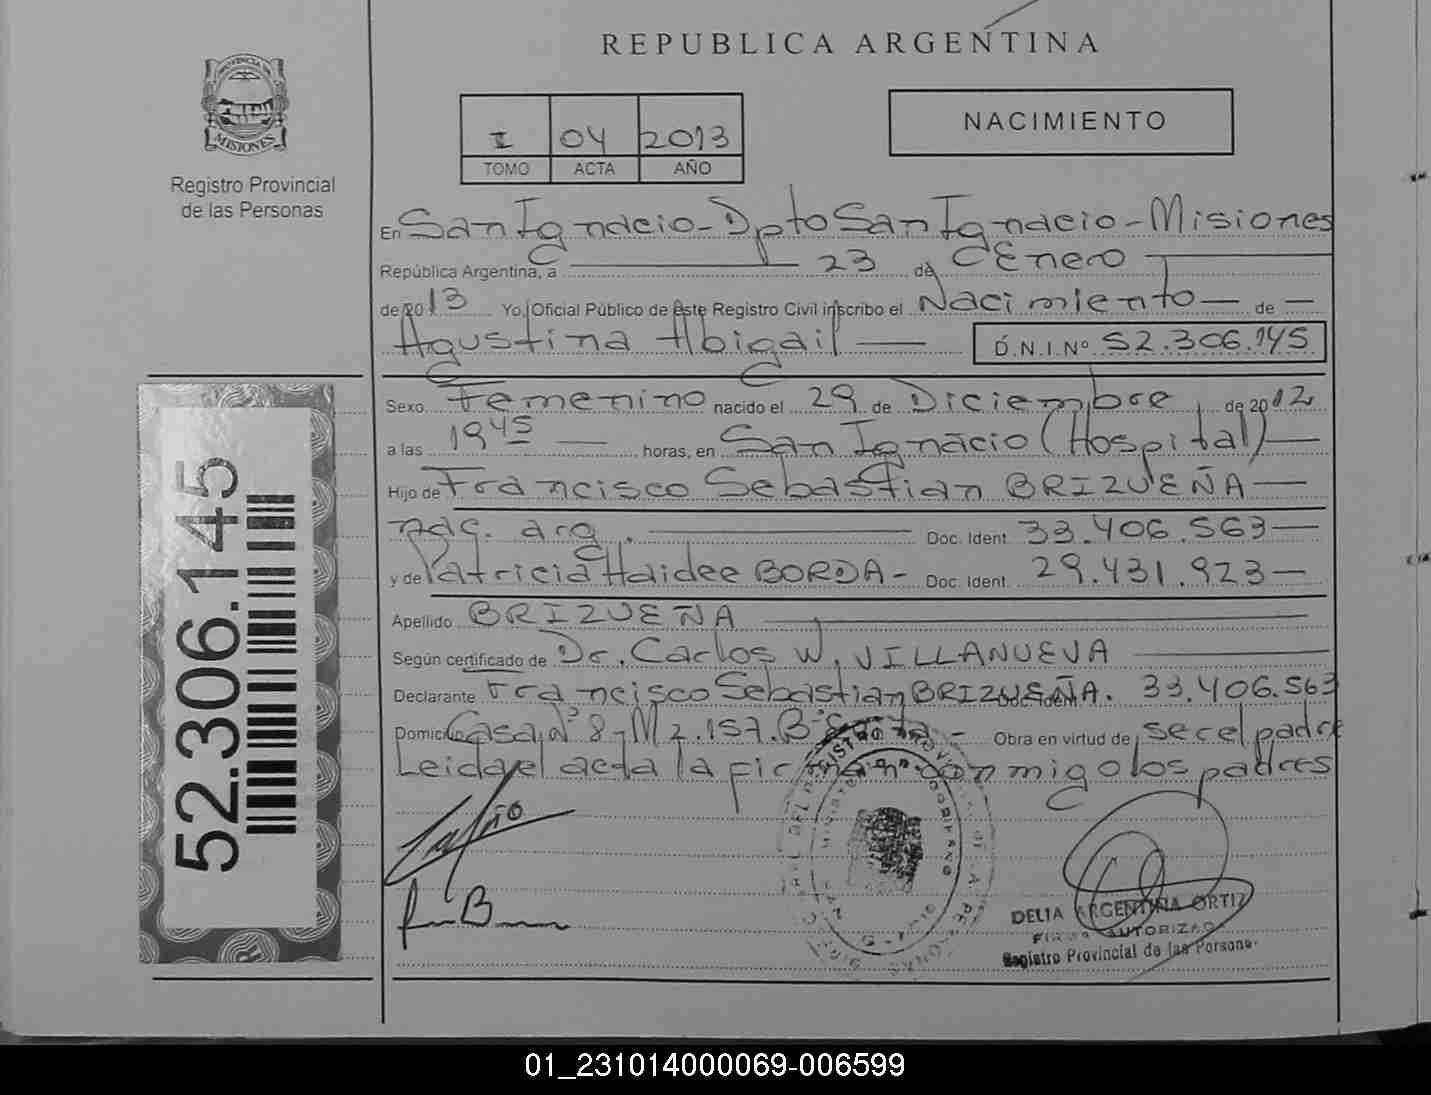 REPUBLICA ARGENTINA
PROVINCIA DE
MISIONES
Registro Provincial
de las Personas
I 04 2013
TOMO ACTA AÑO
NACIMIENTO
En San Ignacio - Dpto San Ignacio - Misiones
República Argentina, a 23 de Enero
de 2013 Yo, Oficial Público de este Registro Civil inscribo el Nacimiento de
Agustina Abigail D.N.I. Nº 52.306.145
Sexo Femenino nacido el 29 de Diciembre de 2012
a las 19 45 horas, en San Ignacio (Hospital)
Hijo de Francisco Sebastian BRIZUEÑA
nac. arg. Doc. Ident. 33.406.563
y de Patricia Haidee BORDA - Doc. Ident. 29.431.923
Apellido BRIZUEÑA
Según certificado de Dr. Carlos W. VILLANUEVA
Declarante Francisco Sebastian BRIZUEÑA. Doc. Ident. 33.406.563
Domicilio Casa Nº 8 - Mz. 157. Bº - Obra en virtud de ser el padre
Leida el acta la firman conmigo los padres
52.306.145
DELIA ARGENTINA ORTIZ
FIRMA AUTORIZAD
Registro Provincial de las Persona
01_231014000069-006599